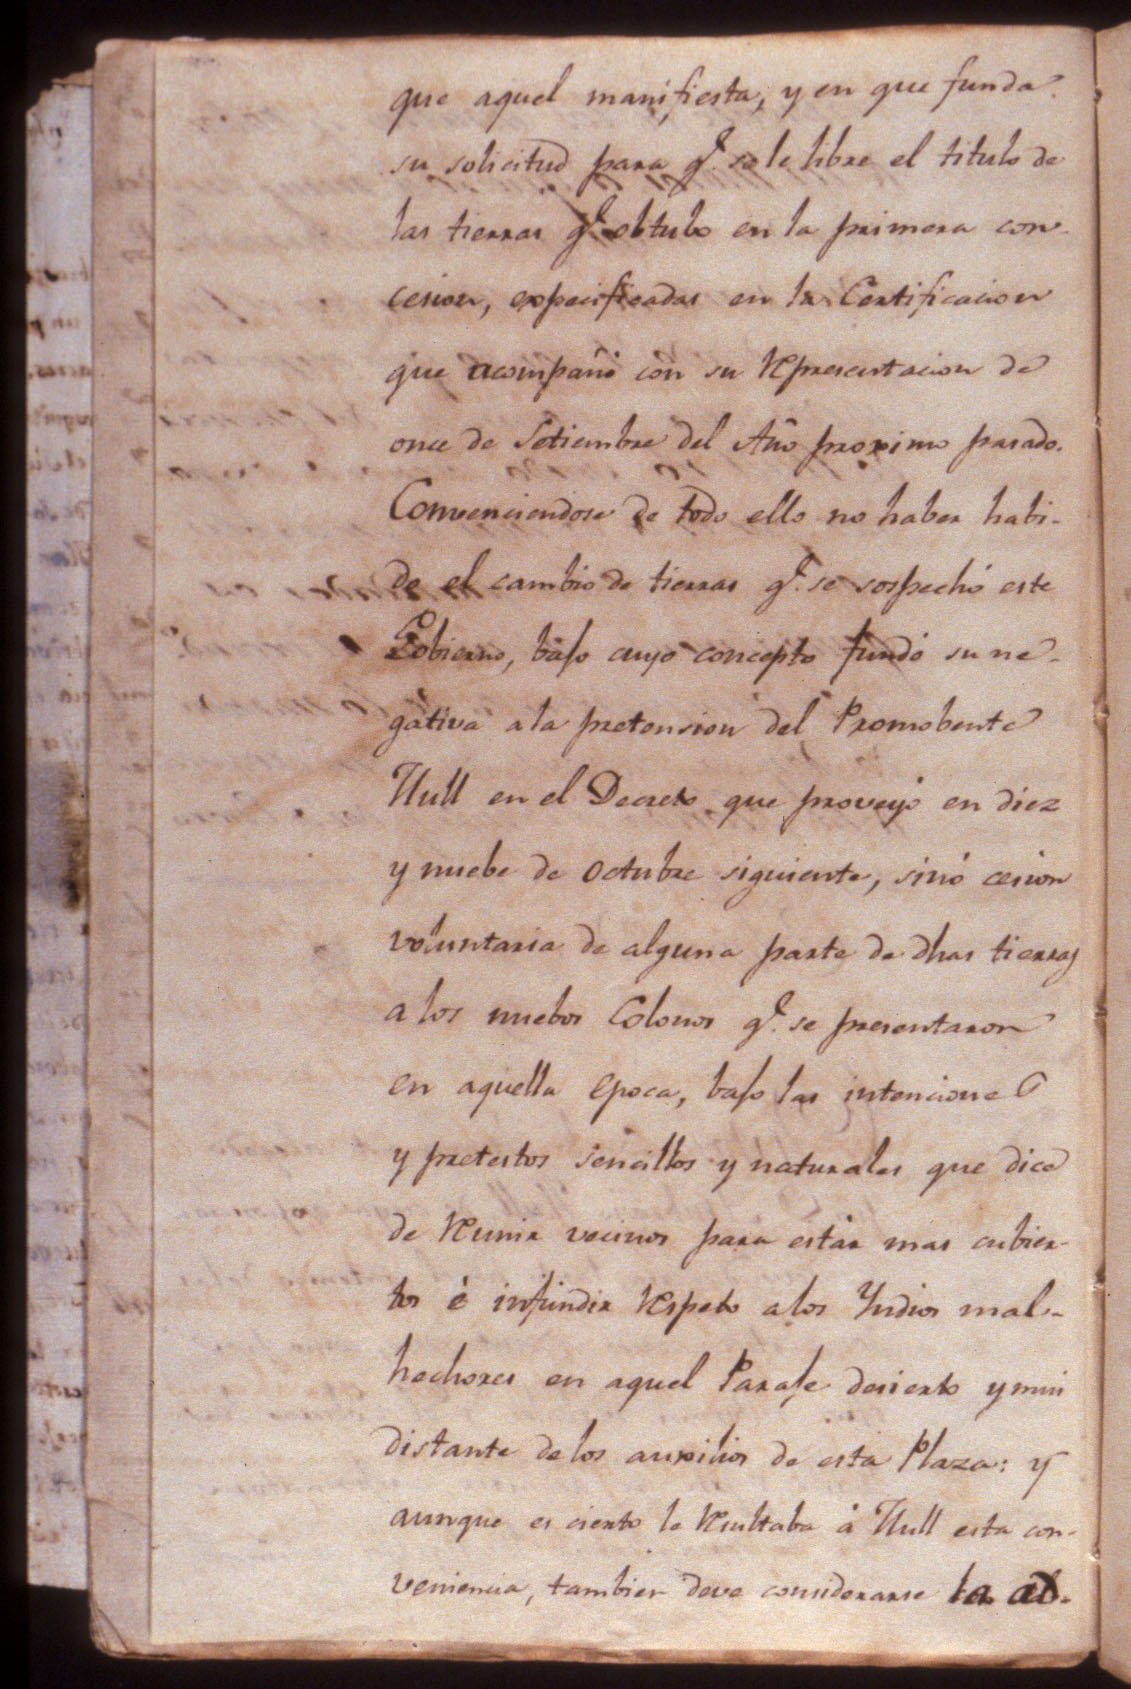 que aquel manifiesta, y en que funda
su solicitud para q.e se le libre el titulo de
las tierras q.e obtubo en la primera con-
cesion, expecificadas en la Certificacion
que acompañó con su Representacion de
once de Setiembre del Año proximo pasado.
Convenciendose de todo ello no haber habi-
do el cambio de tierras q.e se sospechó este
Gobierno, bajo cuyo concepto fundó su ne-
gativa a la pretension del Promobente
Hull en el Decreto que proveyó en diez
y nuebe de Octubre siguiente, sinó cesion
voluntaria de alguna parte de dhas tierras
a los nuebos Colonos q.e se presentaron
en aquella epoca, bajo las intenciones
y pretestos sencillos y naturales que dice
de Reunir vecinos para estár mas cubier-
tos é infundir Respeto a los Yndios mal-
hechores en aquel Paraje desierto y mui
distante de los auxilios de esta Plaza: y
aunque es cierto le Resultaba á Hull esta con-
veniencia, tambien deve considerarse la ad-